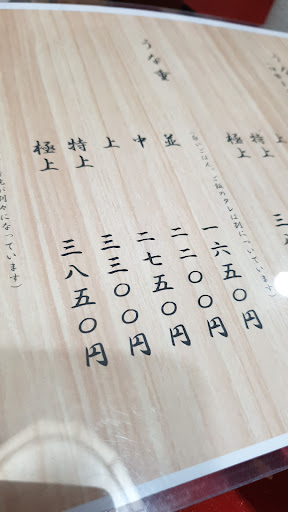 上
特上
極上
三
うな重
(白いごはん、ご飯のタレは別についています)
並 一六五〇円
中 二二〇〇円
上 二七五〇円
特上 三三〇〇円
極上 三八五〇円
が別々になっています)